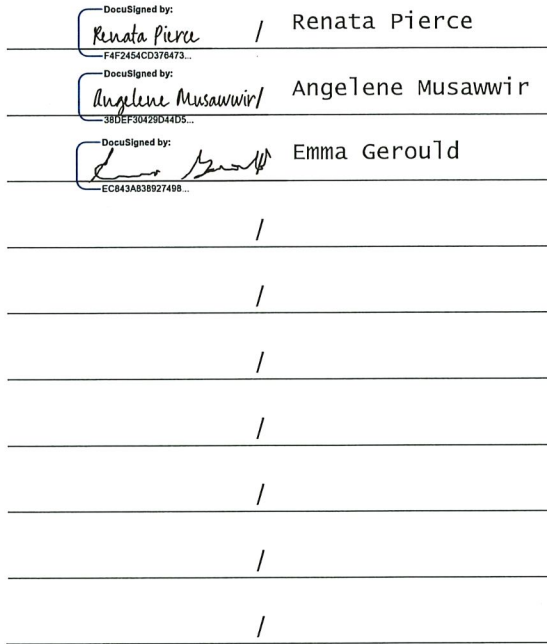 DocuSigned by:
Renata Pierce / Renata Pierce
F4F2454CD376473...
DocuSigned by:
Angelene Musawwir/ Angelene Musawwir
38DEF30429D44D5...
DocuSigned by:
Emma Gerould
EC843A838927498...
/
/
/
/
/
/
/